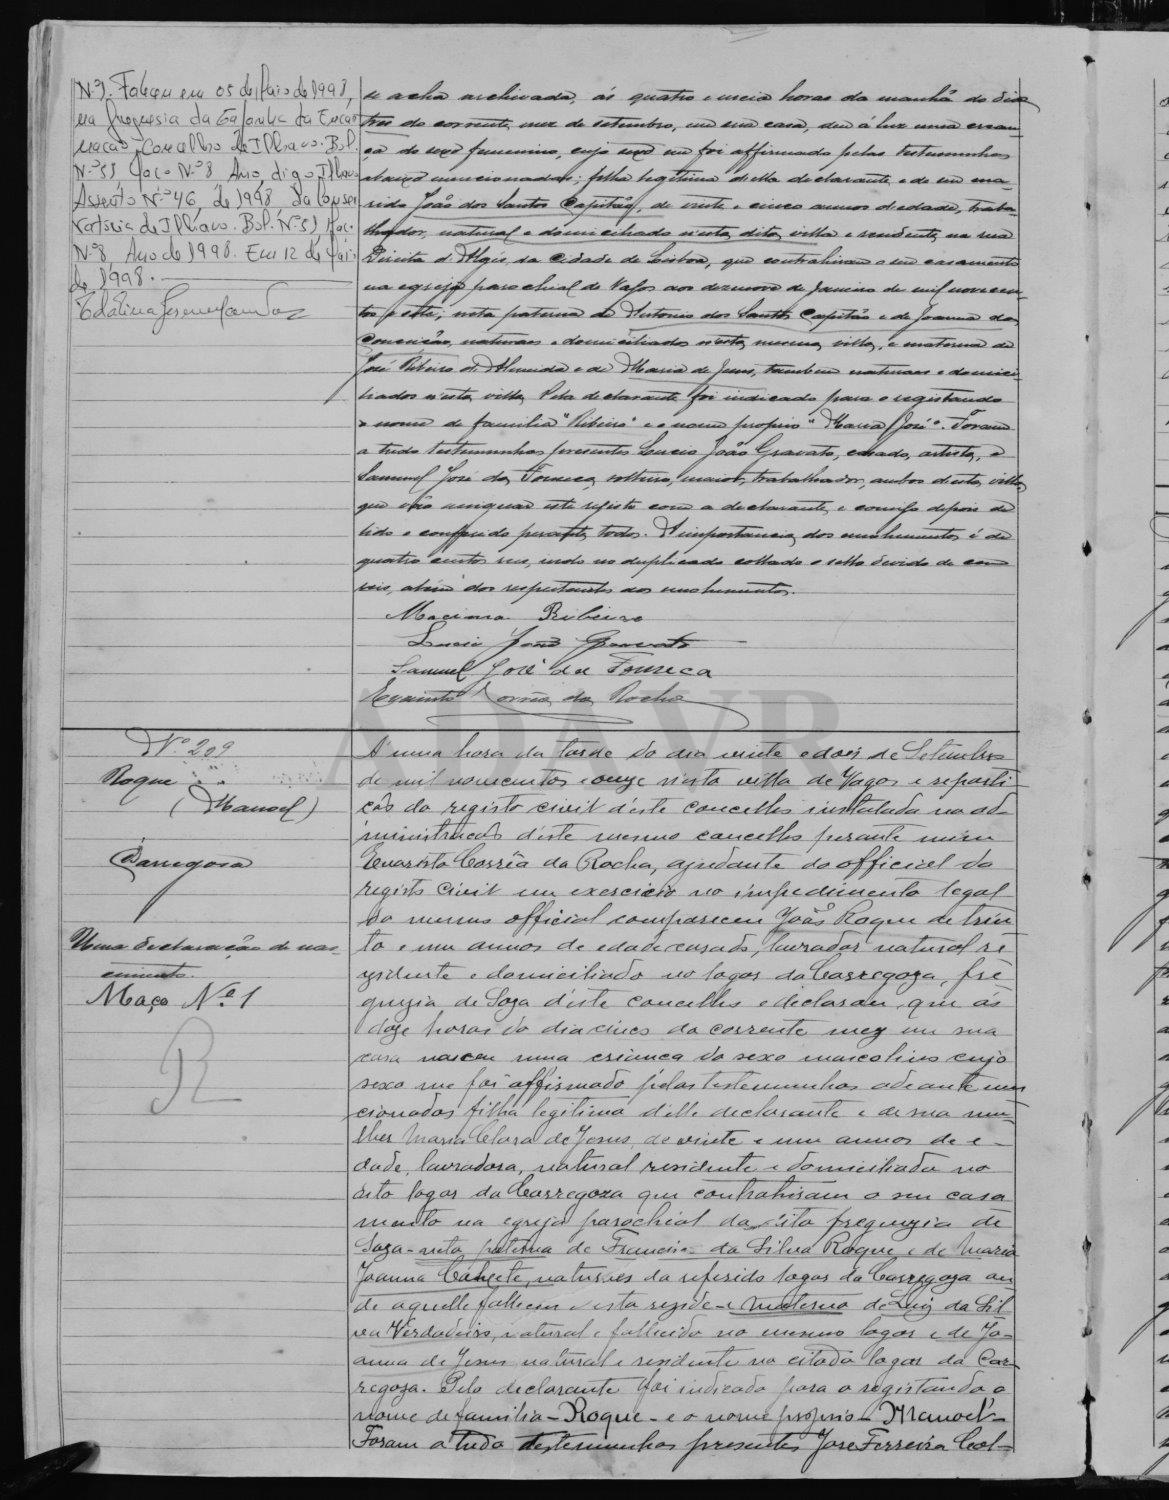 Nº 3. Faleceu em 05 de Maio de 1998,
na freguesia da Gafanha da Encar
nação, Concelho de Ilhavo. Bol.
Nº 53 Maço Nº 8 Ano, digo, Ilhavo
Assento Nº 46, de 1998 da Conser
vatória de Ilhavo. Bol. Nº 53 Maço
Nº 8, Ano de 1998. Em 12 de Maio
de 1998.
se acha archivada, ás quatro e meia horas da manhã do dia
tres do corrente mez de setembro, em sua casa, deu á luz uma crean-
ça do sexo feminino, cujo sexo me foi affirmado pelas testemunhas
abaixo mencionadas; filha legitima della declarante e de seu ma-
rido João dos Santos Capitão, de vinte e cinco annos d'edade, traba-
lhador, natural e domiciliado n'esta dita villa e residente na rua
Direita d'Algés, da cidade de Lisboa, que contrahiram o seu casamento
na egreja parochial de Vagos aos dezenove de Janeiro de mil novecen-
tos e sete; neta paterna de Antonio dos Santos Capitão e de Joanna da
Conceição, naturaes e domiciliados n'esta mesma villa, e materna de
José Ribeiro d'Almeida e de Maria de Jesus, tambem naturaes e domici-
liados n'esta villa. Pela declarante foi indicado para o registando
o nome de familia "Ribeiro" e o nome proprio "Maria José". Foram
a tudo testemunhas presentes Lucio João Gravato, casado, artista, e
Samuel José da Fonseca, solteiro, maior, trabalhador, ambos desta villa,
que vão assignar este registo com a declarante, e comigo depois de
lido e conferido perante todos. A importancia dos emolumentos é de
quatro centos reis, indo no duplicado collado o sello devido de cem
reis, além dos respeitantes aos emolumentos.
Maciana Ribeiro
Lucio João Gravato
Samuel José da Fonseca
Evaristo Corrêa da Rocha
ADAVR
Nº 209
Roque
(Manoel)
Carregosa
Uma declaração de nas-
cimento.
Maço Nº 1
R
A' uma hora da tarde do dia vinte e dois de Setembro
de mil novecentos e onze n'esta villa de Vagos e reparti-
ção do registo civil d'este concelho installada na ad-
ministração d'este mesmo concelho perante mim
Evaristo Corrêa da Rocha, ajudante do official do
registo civil em exercicio no impedimento legal
do mesmo official compareceu João Roque de trin-
ta e um annos de edade casado, lavrador natural re-
zidente e domiciliado no logar da Carregoza, fre-
guezia de Soza d'este concelho e declarou, que ás
doze horas do dia cinco do corrente mez em sua
casa nasceu uma criança do sexo masculino cujo
sexo me foi affirmado pelas testemunhas adeante men-
cionadas filha legitima d'elle declarante e de sua mu-
lher Maria Clara de Jesus, de vinte e um annos de e-
dade, lavradora, natural residente e domiciliada no
dito logar da Carregoza que contrahiram o seu casa
mento na egreja parochial da dita freguezia de
Soza - neto paterno de Francisco da Silva Roque, e de Maria
Joanna Cañete, naturaes do referido logar da Carregoza on
de aquelle falleceu e esta rezide - e materno de Luiz da Sil
va Verdadeiro, natural e fallecido no mesmo logar e de Jo-
anna de Jesus natural e residente no citado logar da Car-
regoza. Pelo declarante foi indicado para o registando o
nome de familia - Roque - e o nome proprio - Manoel -
Foram a tudo testemunhas presentes José Ferreira Col-